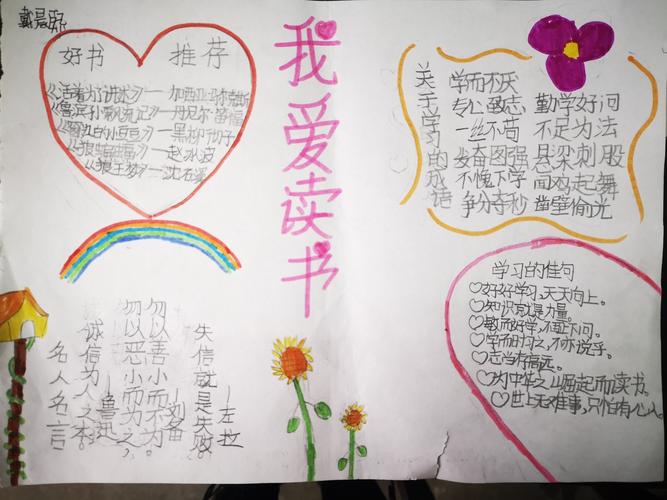 戴晨
我爱读书
好书 推荐
《活着为了讲述》——加西亚·马尔克斯
《鲁滨孙漂流记》——丹尼尔·笛福
《窗边的小豆豆》——黑柳彻子
——赵冰波
《狼王梦》——沈石溪
关于学习的成语
学而不厌
专心致志 勤学好问
一丝不苟 不足为法
发奋图强 悬梁刺股
不愧下学 闻鸡起舞
争分夺秒 凿壁偷光
学习的佳句
好好学习,天天向上。
知识就是力量。
敏而好学,不耻下问。
学而时习之,不亦说乎。
志当存高远。
为中华之崛起而读书。
世上无难事,只怕有心人。
失信就是失败。
——左拉
勿以善小而不为。
勿以恶小而为之,
——刘备
诚信为人之本。
——鲁迅
名人名言